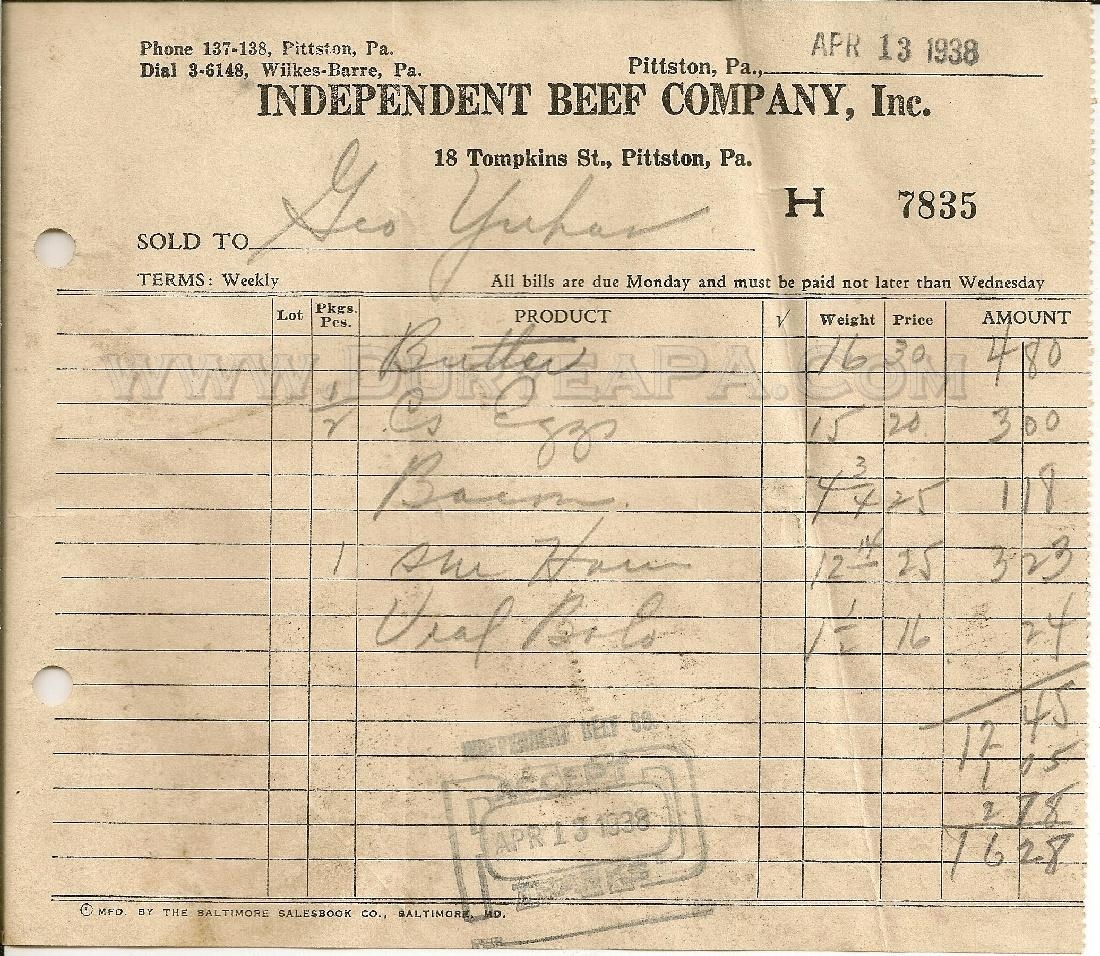 Phone 137-138, Pittston, Pa.
Dial 3-6148, Wilkes-Barre, Pa.
Pittston, Pa., APR 13 1938
INDEPENDENT BEEF COMPANY, Inc.
18 Tompkins St., Pittston, Pa.
H 7835
SOLD TO Geo Yuhas
TERMS: Weekly All bills are due Monday and must be paid not later than Wednesday
Lot Pkgs. Pcs. PRODUCT √ Weight Price AMOUNT
Butter 16 30 4 80
WWW.DURYEAPA.COM
1/2 Cs Eggs 15 20 3 00
Bacon 4 3/4 25 1 18
1 Ham 12 14 25 3 23
Veal Bolo 1 1/2 16 24
12 45
1 05
2 78
16 28
INDEPENDENT BEEF CO.
APR 13 1938
© MFD. BY THE BALTIMORE SALESBOOK CO., BALTIMORE, MD.